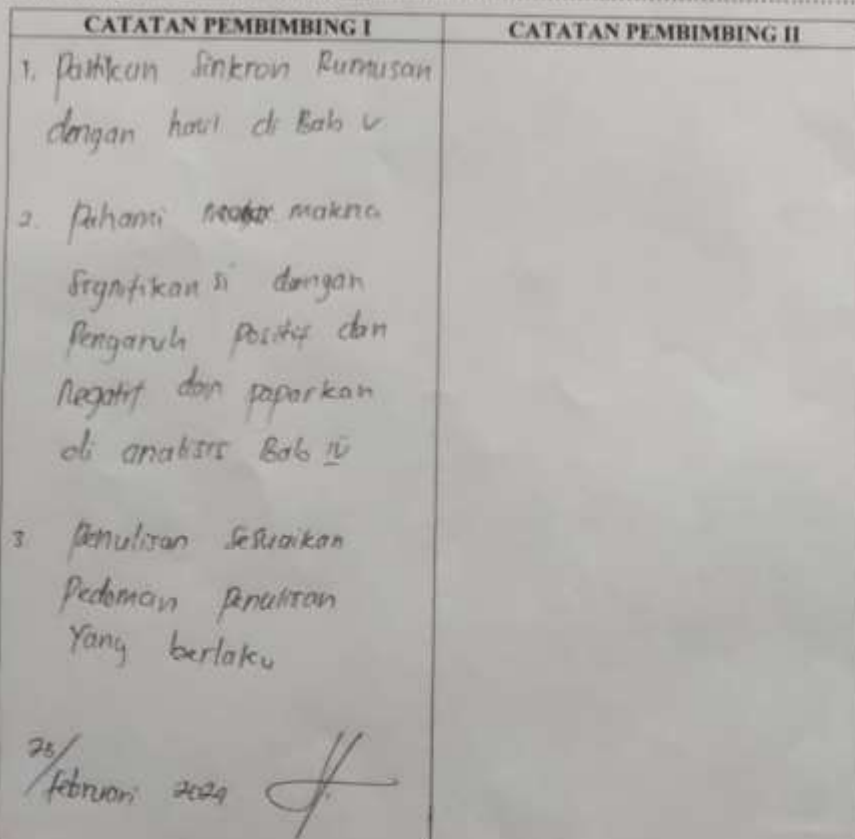 CATATAN PEMBIMBING I
CATATAN PEMBIMBING II
1. Pastikan Sinkron Rumusan
dengan hasil di Bab V
2. Pahami makna
Signifikansi dengan
Pengaruh Positif dan
Negatif dan paparkan
di analisis Bab IV
3 Penulisan Sesuaikan
Pedoman Penulisan
Yang berlaku
Februari